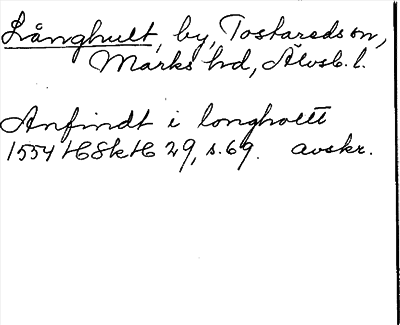 Långhult, by, Tostareds sn,
Marks hd, Älvsb. l.
Anfindt i longholtt
1554 HSkH 29, s. 69. avskr.